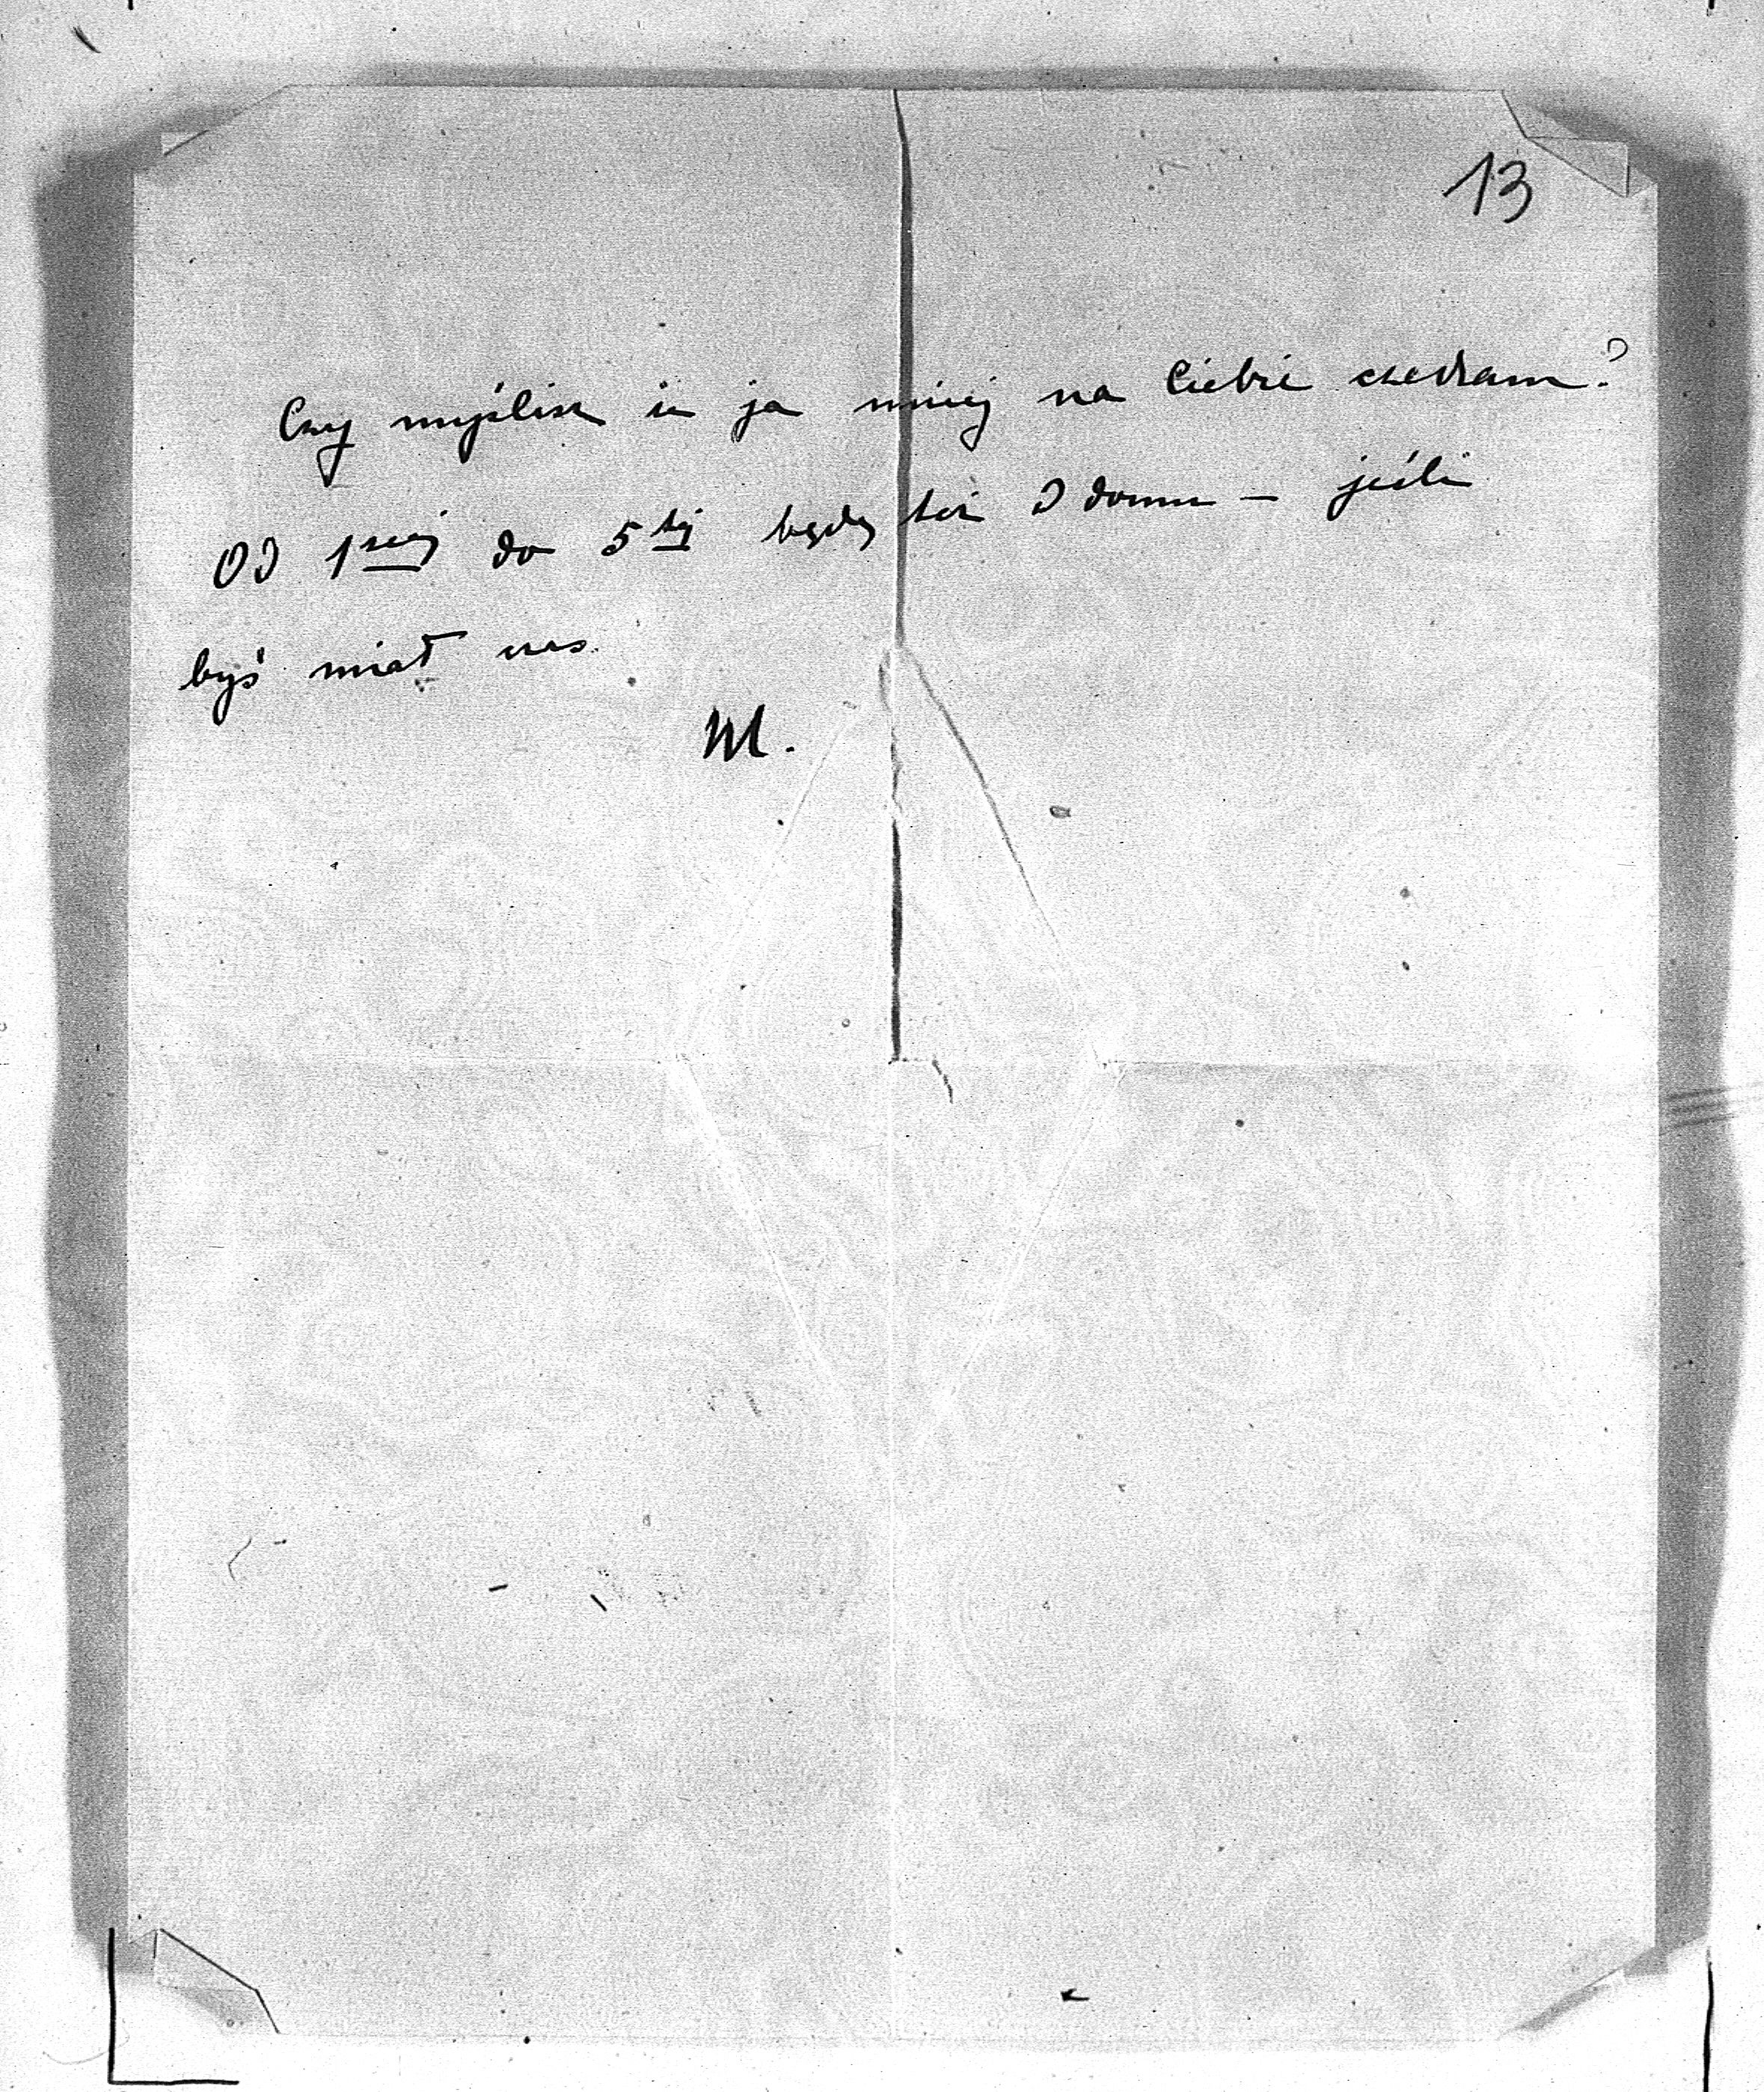 13
Czy myślisz że ja mniej na Ciebie czekam?
Od 1szej do 5tej będę też w domu — jeśli
byś miał czas.
M.